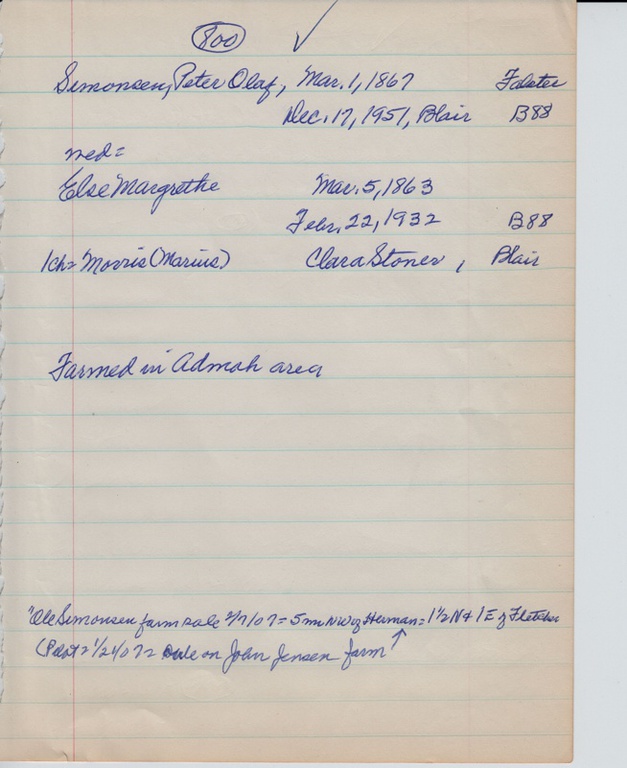 800 ✓
Simonsen, Peter Olaf, Mar. 1, 1867 Falster
Dec. 17, 1951, Blair B88
med=
Else Margrethe Mar. 5, 1863
Febr. 22, 1932 B88
1ch= Morris (Marius) Clara Stoner, Blair
Farmed in Admah area
"Ole Simonsen farm sale 2/7/07= 5 mi NW of Herman= 1 1/2 N & 1 E of Fletcher
(Pilot= 1/24/07= sale on John Jensen farm ↑